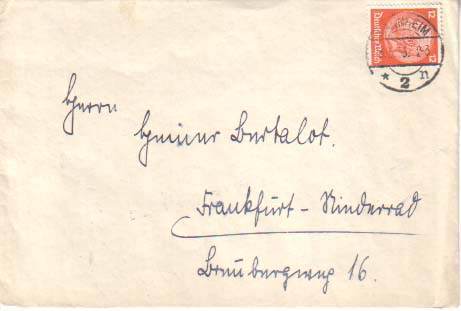 12 Deutsches Reich 12
HEIM
* 2 n
Herrn
Heiner Bertalot.
Frankfurt - Niederrad
Breubergweg 16.